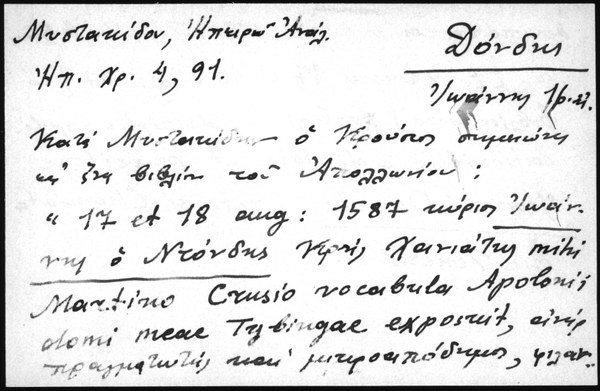 Μυστακίδου, Ἠπειρωτ. Ἀνάλ.
Ἠπ. Χρ. 4, 91.
Δόνδης
Ἰωάννης
Κατὰ Μυστακίδην ὁ Κρούσιος σημειώνει
σὲ ἕνα βιβλίο τοῦ Ἀπολλωνίου :
" 17 et 18 aug: 1587 κύριος Ἰωάν-
νης ὁ Ντόνδης Κρὴς Χανιάτης mihi
Martino Crusio vocabula Apolonii
domi meae Tybingae exposuit, ἀνὴρ
πραγματευτὴς καὶ μικροαπόδημος, φιλαν-